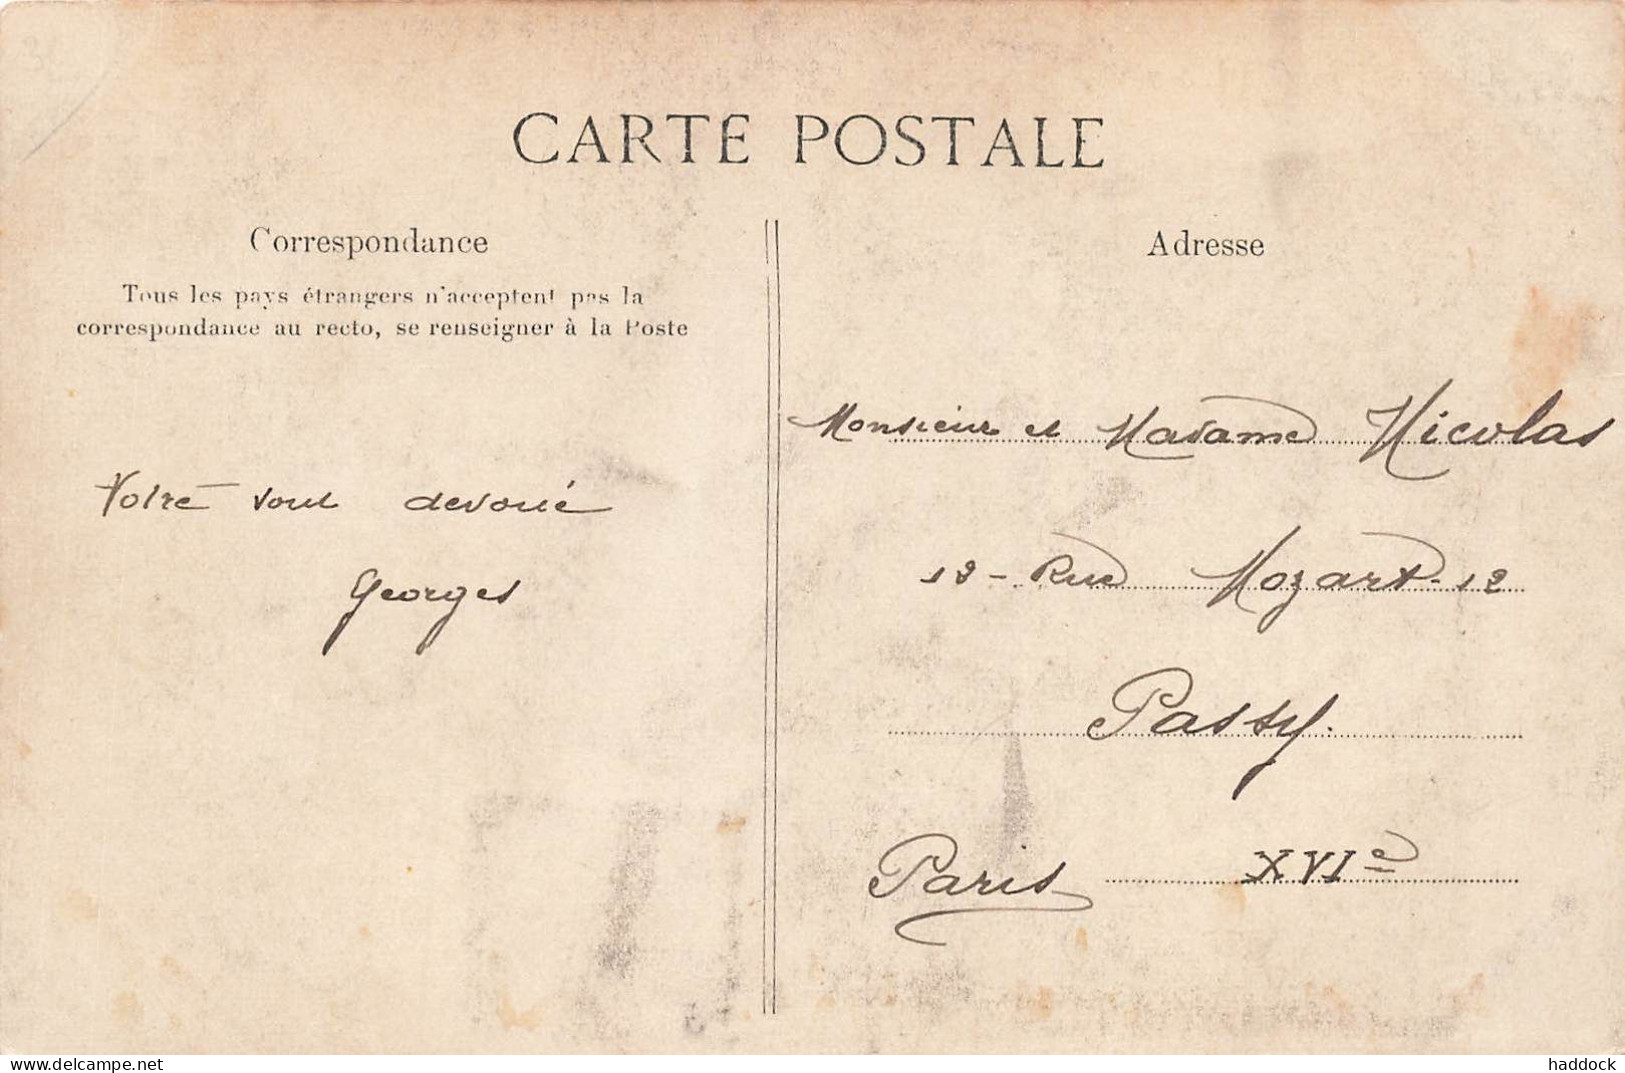 CARTE POSTALE
Correspondance
Tous les pays étrangers n'acceptent pas la
correspondance au recto, se renseigner à la Poste
Votre tout devoué
Georges
Adresse
Monsieur et Madame Nicolas
12 - Rue Mozart - 12
Passy.
Paris XVIe
www.delcampe.net
haddock